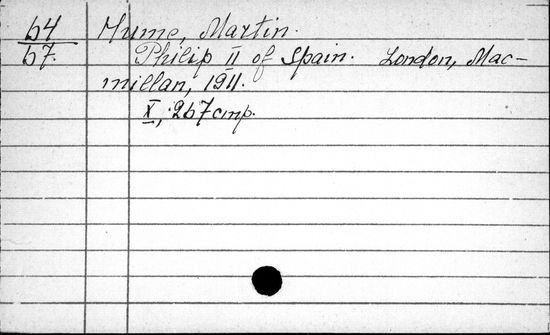 64 Hume, Martin.
67. Philip II of Spain. London, Mac-
millan, 1911.
X, 267 стр.